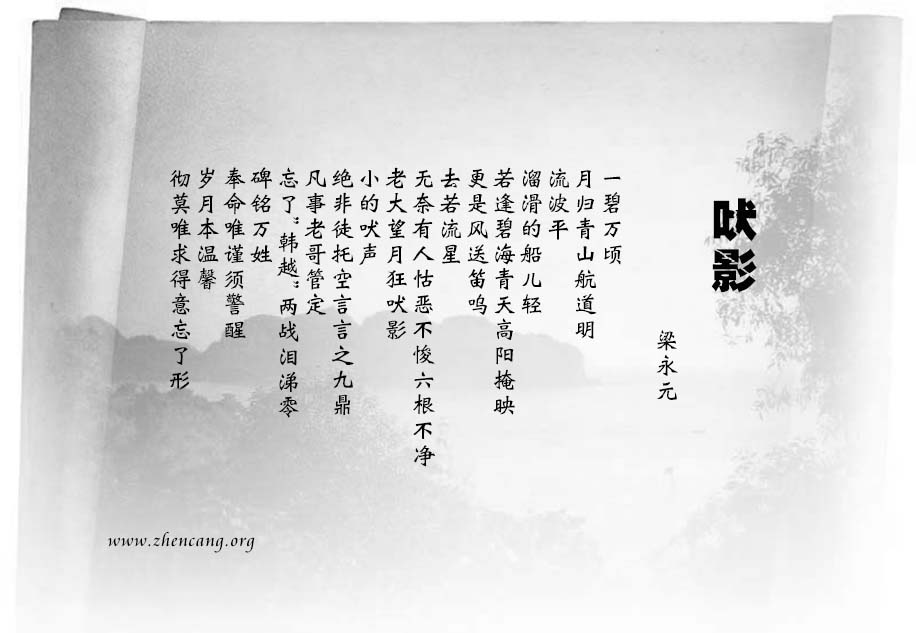 吠影
梁永元
一碧万顷
月归青山航道明
流波平
溜滑的船儿轻
若逢碧海青天高阳掩映
更是风送笛鸣
去若流星
无奈有人怙恶不悛六根不净
老大望月狂吠影
小的吠声
绝非徒托空言言之九鼎
凡事老哥管定
忘了“韩越”两战泪涕零
碑铭万姓
奉命唯谨须警醒
岁月本温馨
彻莫唯求得意忘了形
www.zhencang.org